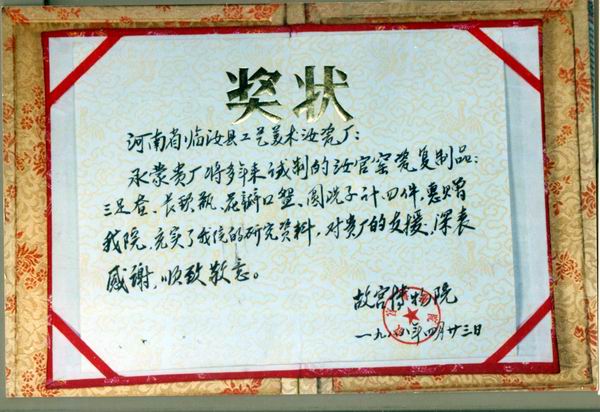 奖状
河南省临汝县工艺美术汝瓷厂:
承蒙贵厂将多年来试制的汝官窑瓷复制品:
三足奁、长颈瓶、花瓣口盤、圆洗子计四件,惠赠
我院,充实了我院的研究资料,对贵厂的支援,深表
感谢,顺致敬意。
故宫博物院
一九八八年四月廿三日